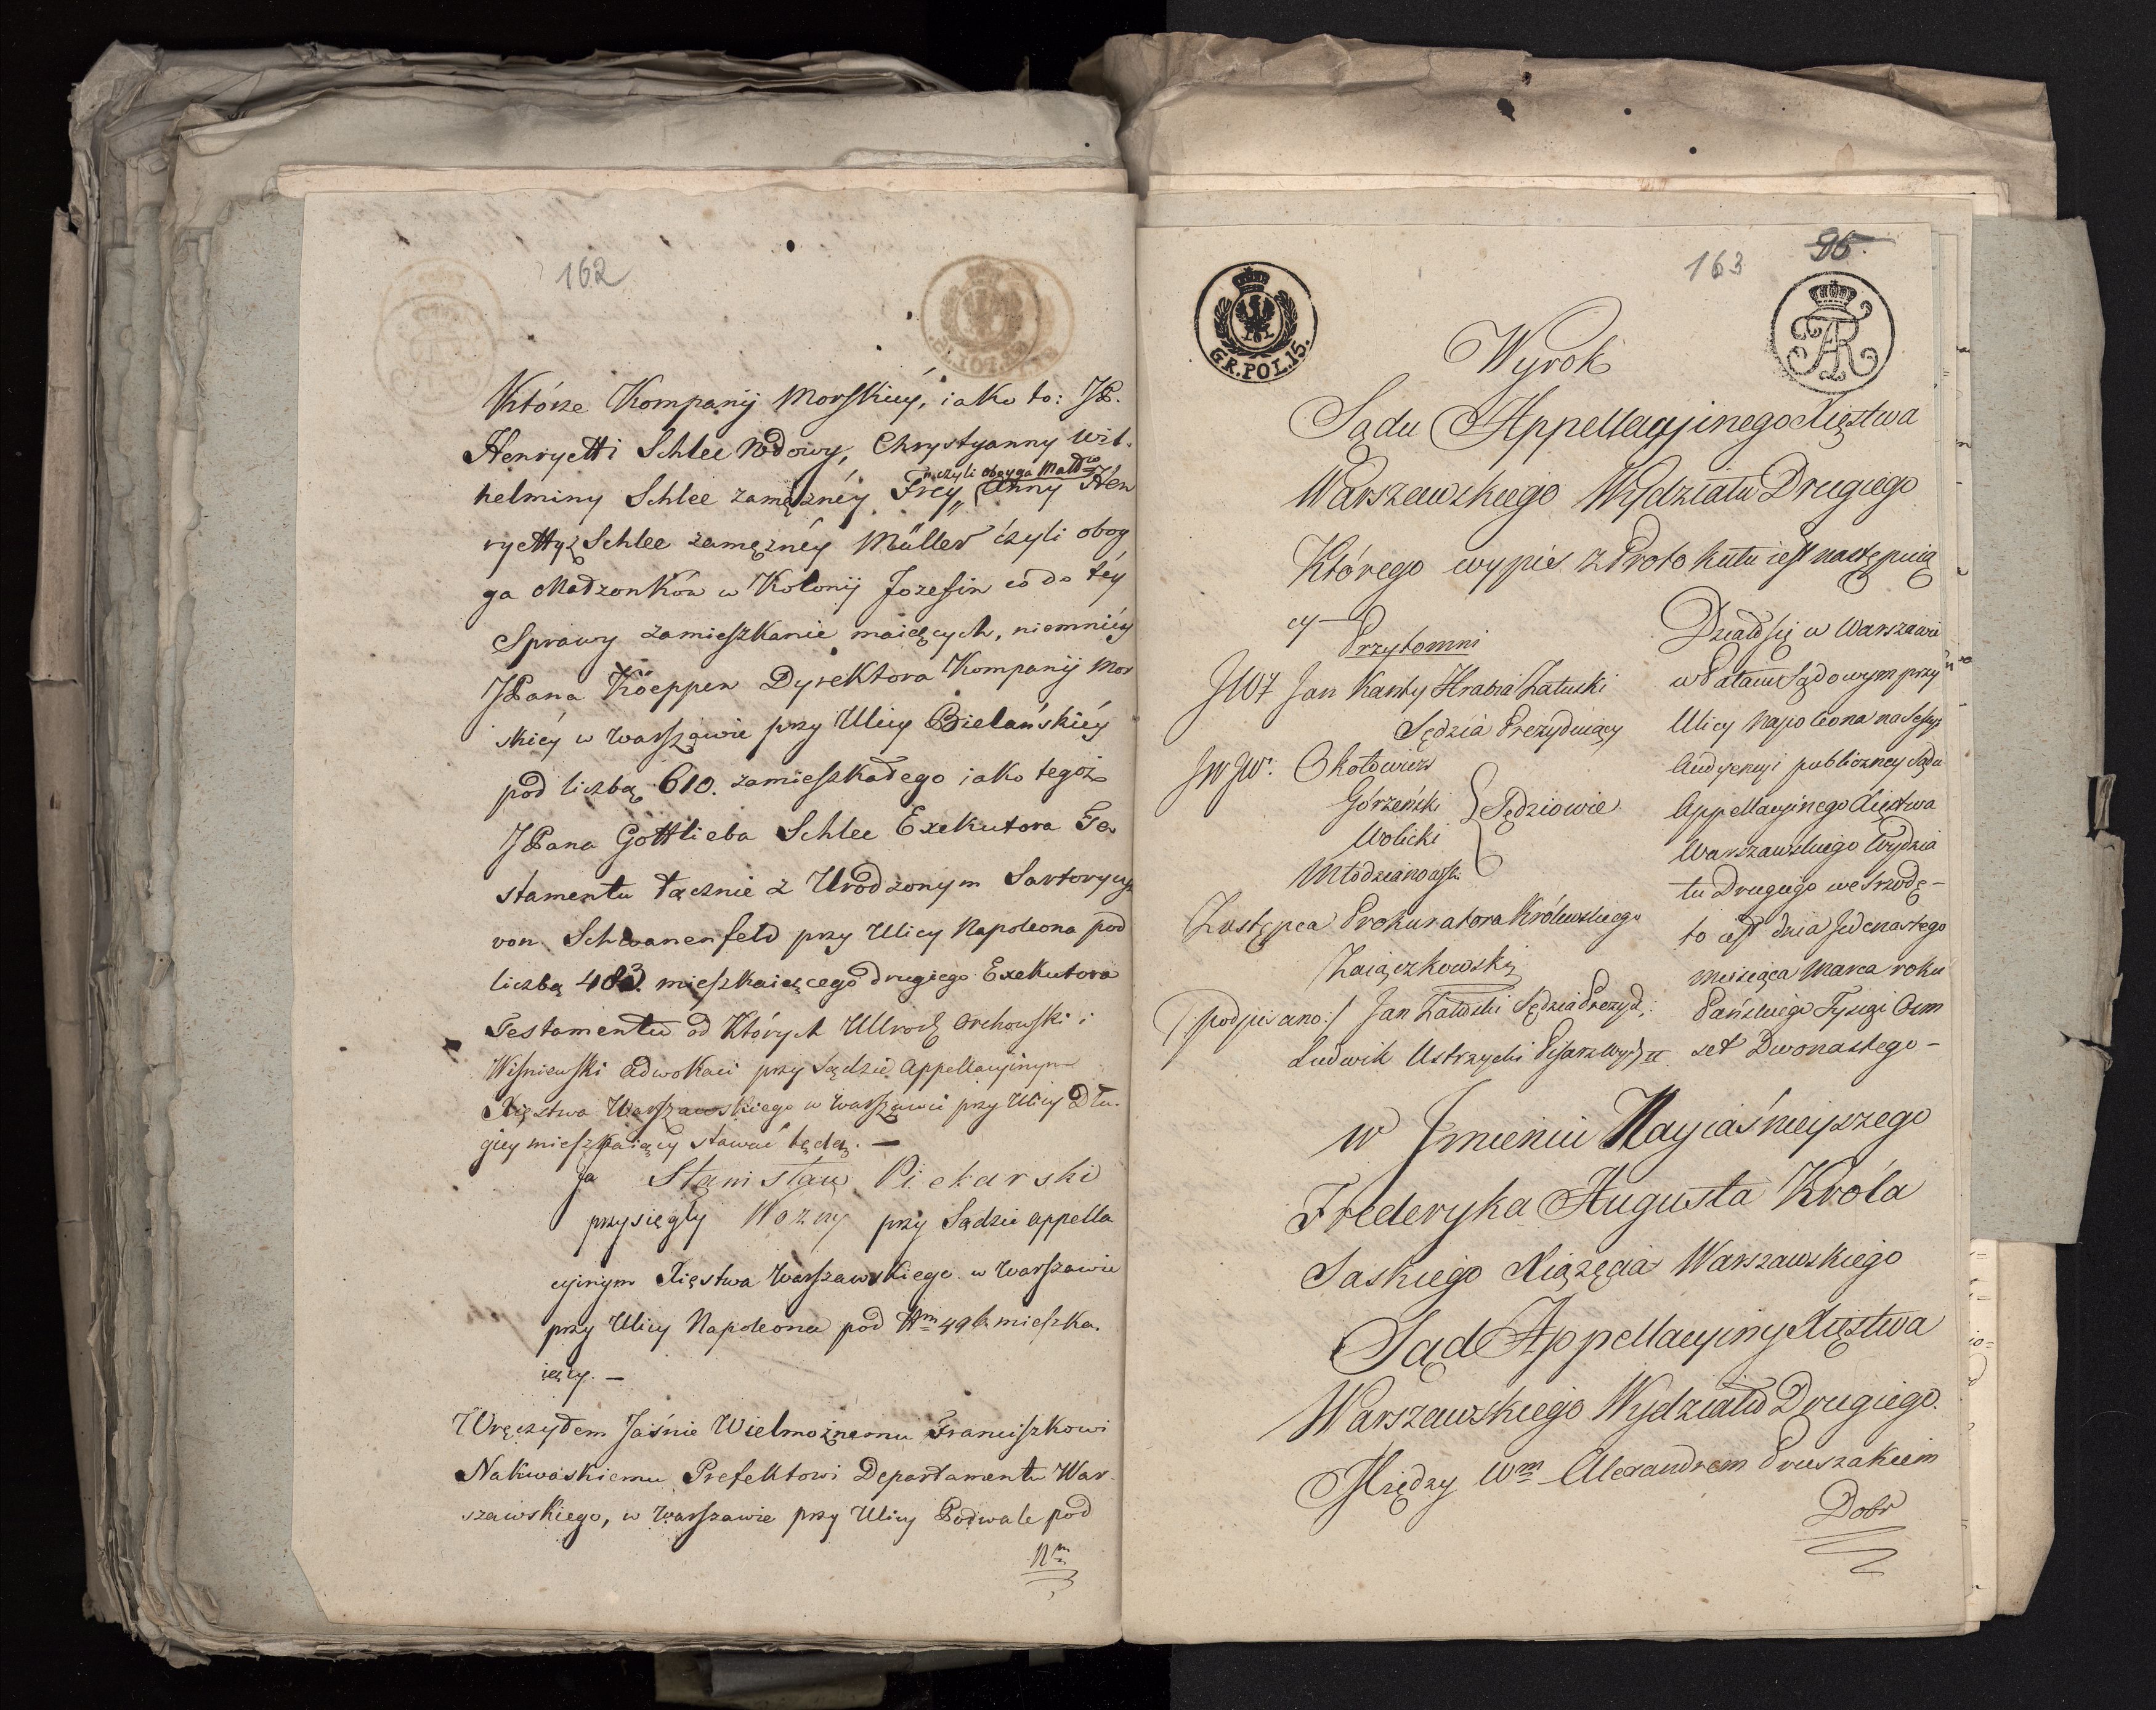 162
Którze Kompanij Morskiey, iako to: JP.
Henryetti Schlee Wdowy, Chrystyanny Wil-
czyli oboyga Małd
helminy Schlee zamężnéy Frey„ Anny Hen
rychtty Schlee zamężnéy Müller czyli oboy
ga Małzonków w Kolonij Jozefin co do téy
Sprawy zamieszkanie maiących, niemniéy
JPana Köeppen Dyrektora Kompanij Mor
skiéy w Warszawie przy Ulicy Bielańskiéy
pod liczbą 610. zamieszkałego iako tegoż
JPana Gottlieba Schlee Exekutora Te
stamentu łącznie z Urodzonym Sartoryusz
von Schwanenfeld przy Ulicy Napoleona pod
liczbą mieszkaiącego drugiego Exekutora
Testamentu od których Orchowski i
Wiśniewski Adwokaci przy Sądzie Appellacyinym
Xięstwa Warszawskiego w Warszawie przy Ulicy Dłu-
giey mieszkaiący stawać będą. —
Ja Stanisław Piekarski
przysięgły Woźny przy Sądzie appella
cyinym Xięstwa Warszawskiego w Warszawie
przy Ulicy Napoleona pod Nm mieszka.
iący. —
Wręczyłem Jaśnie Wielmożnemu Franciszkowi
Nakwaskiemu Prefektowi Departamentu War-
szawskiego, w Warszawie przy Ulicy Podwale pod
Nm
163
95.
GR.POL.15.
FAR
Wyrok
Sądu Appellacyinego Xięstwa
Warszawskiego Wydziału Drugiego
Którego wypis z Protokułu iest następuią
cy —
Przytomni
JW Jan Kanty Hrabia Załuski
Sędzia Prezyduiący
JWJW: Okołowicz
Górzeński
Wolicki
Młodzianowski
Sędziowie
Zastępca Prokuratora Królewskiego
Zaiączkowski
/:podpisano:/ Jan Załuski Sędzia Prezyd:
Ludwik Ustrzycki Pisarz Wyd II
Działo się w Warszawie
w Pałacu Sądowym przy
Ulicy Napoleona na Sessyi
Audyencyi publiczney Sądu
Appellacyinego Xięstwa
Warszawskiego Wydzia
łu Drugiego we Srzodę —
to iest dnia Jedenastego
miesiąca Marca roku
Pańskiego Tysiąc Osm
set Dwonastego —
w Jmieniu Nayiaśnieyszego
Fryderyka Augusta Króla
Saskiego Xiążęcia Warszawskiego
Sąd Appellacyiny Xięstwa
Warszawskiego Wydziału Drugiego.
Między Wm Alexandrem Pruszakiem
Dobr